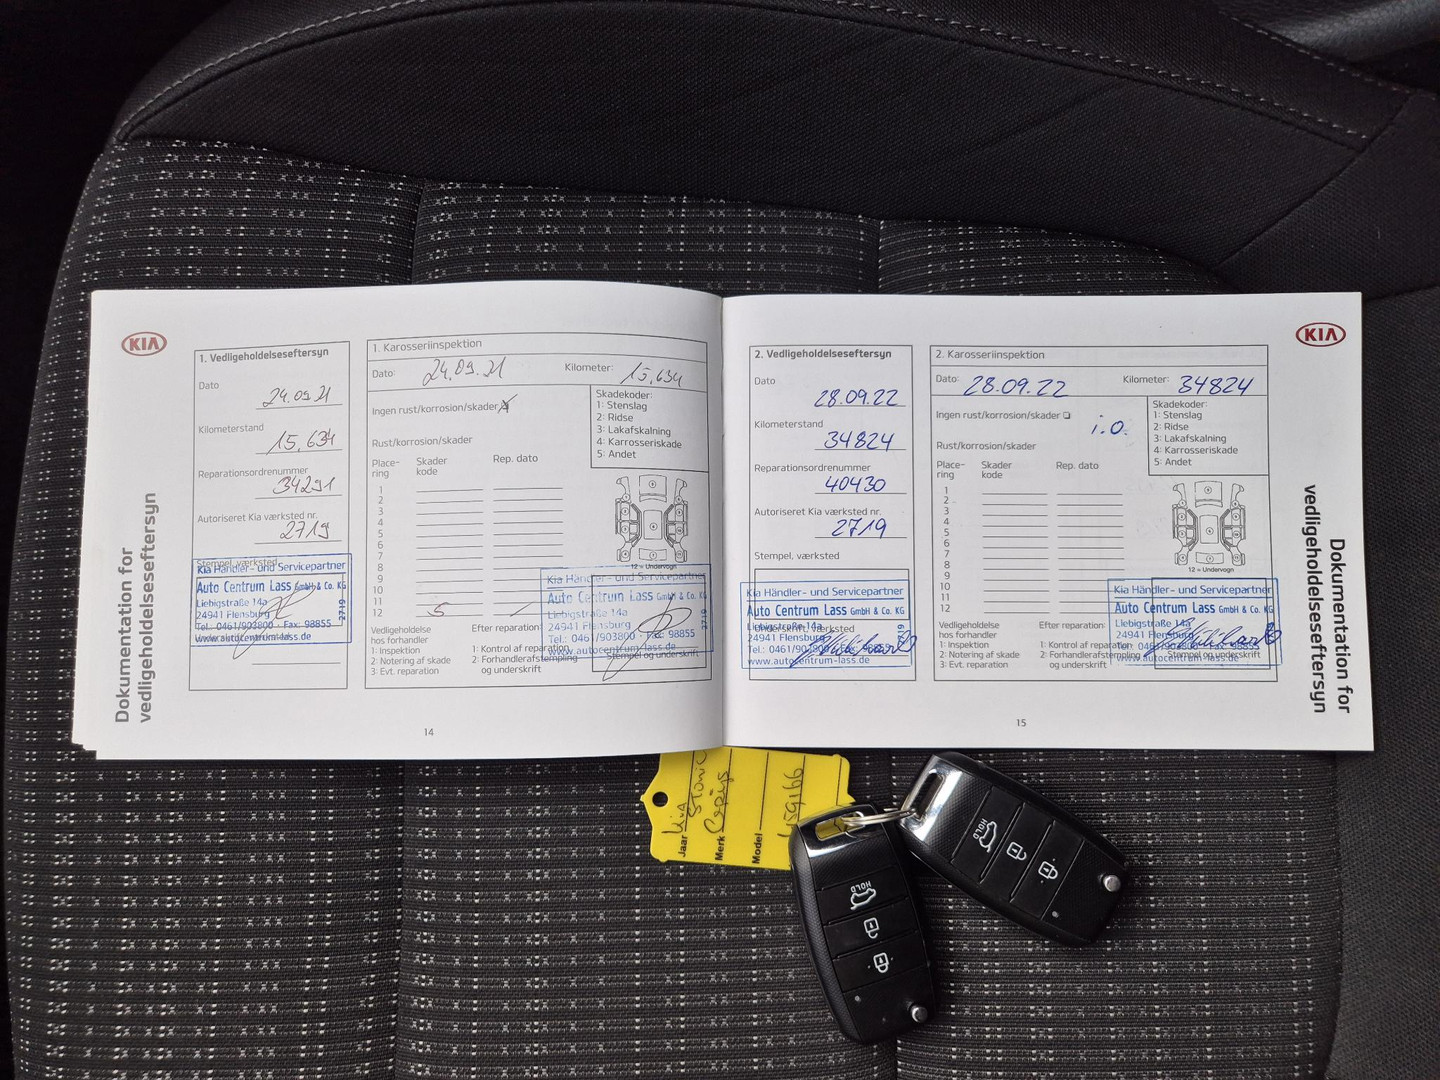 KIA
Dokumentation for
vedligeholdelseseftersyn
1. Vedligeholdelseseftersyn
Dato
24.09.21
Kilometerstand
15.634
Reparationsordrenummer
34291
Autoriseret Kia værksted nr.
2719
Stempel, værksted
Kia Händler- und Servicepartner
Auto Centrum Lass GmbH & Co. KG
Liebigstraße 14a
24941 Flensburg
Tel.: 0461/903800 · Fax: 98855
www.autocentrum-lass.de
2719
1. Karosseriinspektion
Dato: 24.09.21
Kilometer: 15.634
Ingen rust/korrosion/skader
Rust/korrosion/skader
Place-
ring
Skader
kode
Rep. dato
1
2
3
4
5
6
7
8
9
10
11
12 5
Skadekoder:
1: Stenslag
2: Ridse
3: Lakafskalning
4: Karrosseriskade
5: Andet
12 = Undervogn
Vedligeholdelse
hos forhandler
1: Inspektion
2: Notering af skade
3: Evt. reparation
Efter reparation:
1: Kontrol af reparation
2: Forhandlerafstempling
og underskrift
Kia Händler- und Servicepartner
Auto Centrum Lass GmbH & Co. KG
Liebigstraße 14a
24941 Flensburg
Tel.: 0461/903800 · Fax: 98855
www.autocentrum-lass.de
2719
Stempel og underskrift
14
2. Vedligeholdelseseftersyn
Dato
28.09.22
Kilometerstand
34824
Reparationsordrenummer
40430
Autoriseret Kia værksted nr.
2719
Stempel, værksted
Kia Händler- und Servicepartner
Auto Centrum Lass GmbH & Co. KG
Underskrift, værksted
Liebigstraße 14a
24941 Flensburg
Tel.: 0461/903800
www.autocentrum-lass.de
2. Karosseriinspektion
Dato: 28.09.22
Kilometer: 34824
Ingen rust/korrosion/skader ❏
i.o.
Rust/korrosion/skader
Place-
ring
Skader
kode
Rep. dato
1
2
3
4
5
6
7
8
9
10
11
12
Skadekoder:
1: Stenslag
2: Ridse
3: Lakafskalning
4: Karrosseriskade
5: Andet
12 = Undervogn
Vedligeholdelse
hos forhandler
1: Inspektion
2: Notering af skade
3: Evt. reparation
Efter reparation:
1: Kontrol af reparation
2: Forhandlerafstempling
og underskrift
Kia Händler- und Servicepartner
Auto Centrum Lass GmbH & Co. KG
Liebigstraße 14a
24941 Flensburg
www.autocentrum-lass.de
Stempel og underskrift
15
KIA
Dokumentation for
vedligeholdelseseftersyn
Jaar Kia
Stonic
Merk
Model
HOLD
HOLD